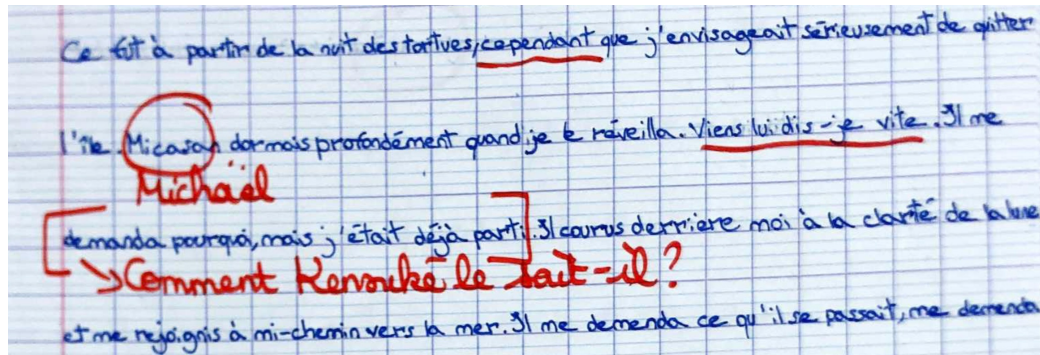 Ce fut à partir de la nuit des tortues, cependant que j'envisageait sérieusement de quitter
l'île. Micasan dormais profondément quand je le réveilla. Viens lui dis-je vite. Il me
Michaël
demanda pourquoi, mais j'était déjà parti. Il courus derrière moi à la clarté de la lune
Comment Kensuké le sait-il ?
et me rejoignis à mi-chemin vers la mer. Il me demenda ce qu'il se passait, me demenda